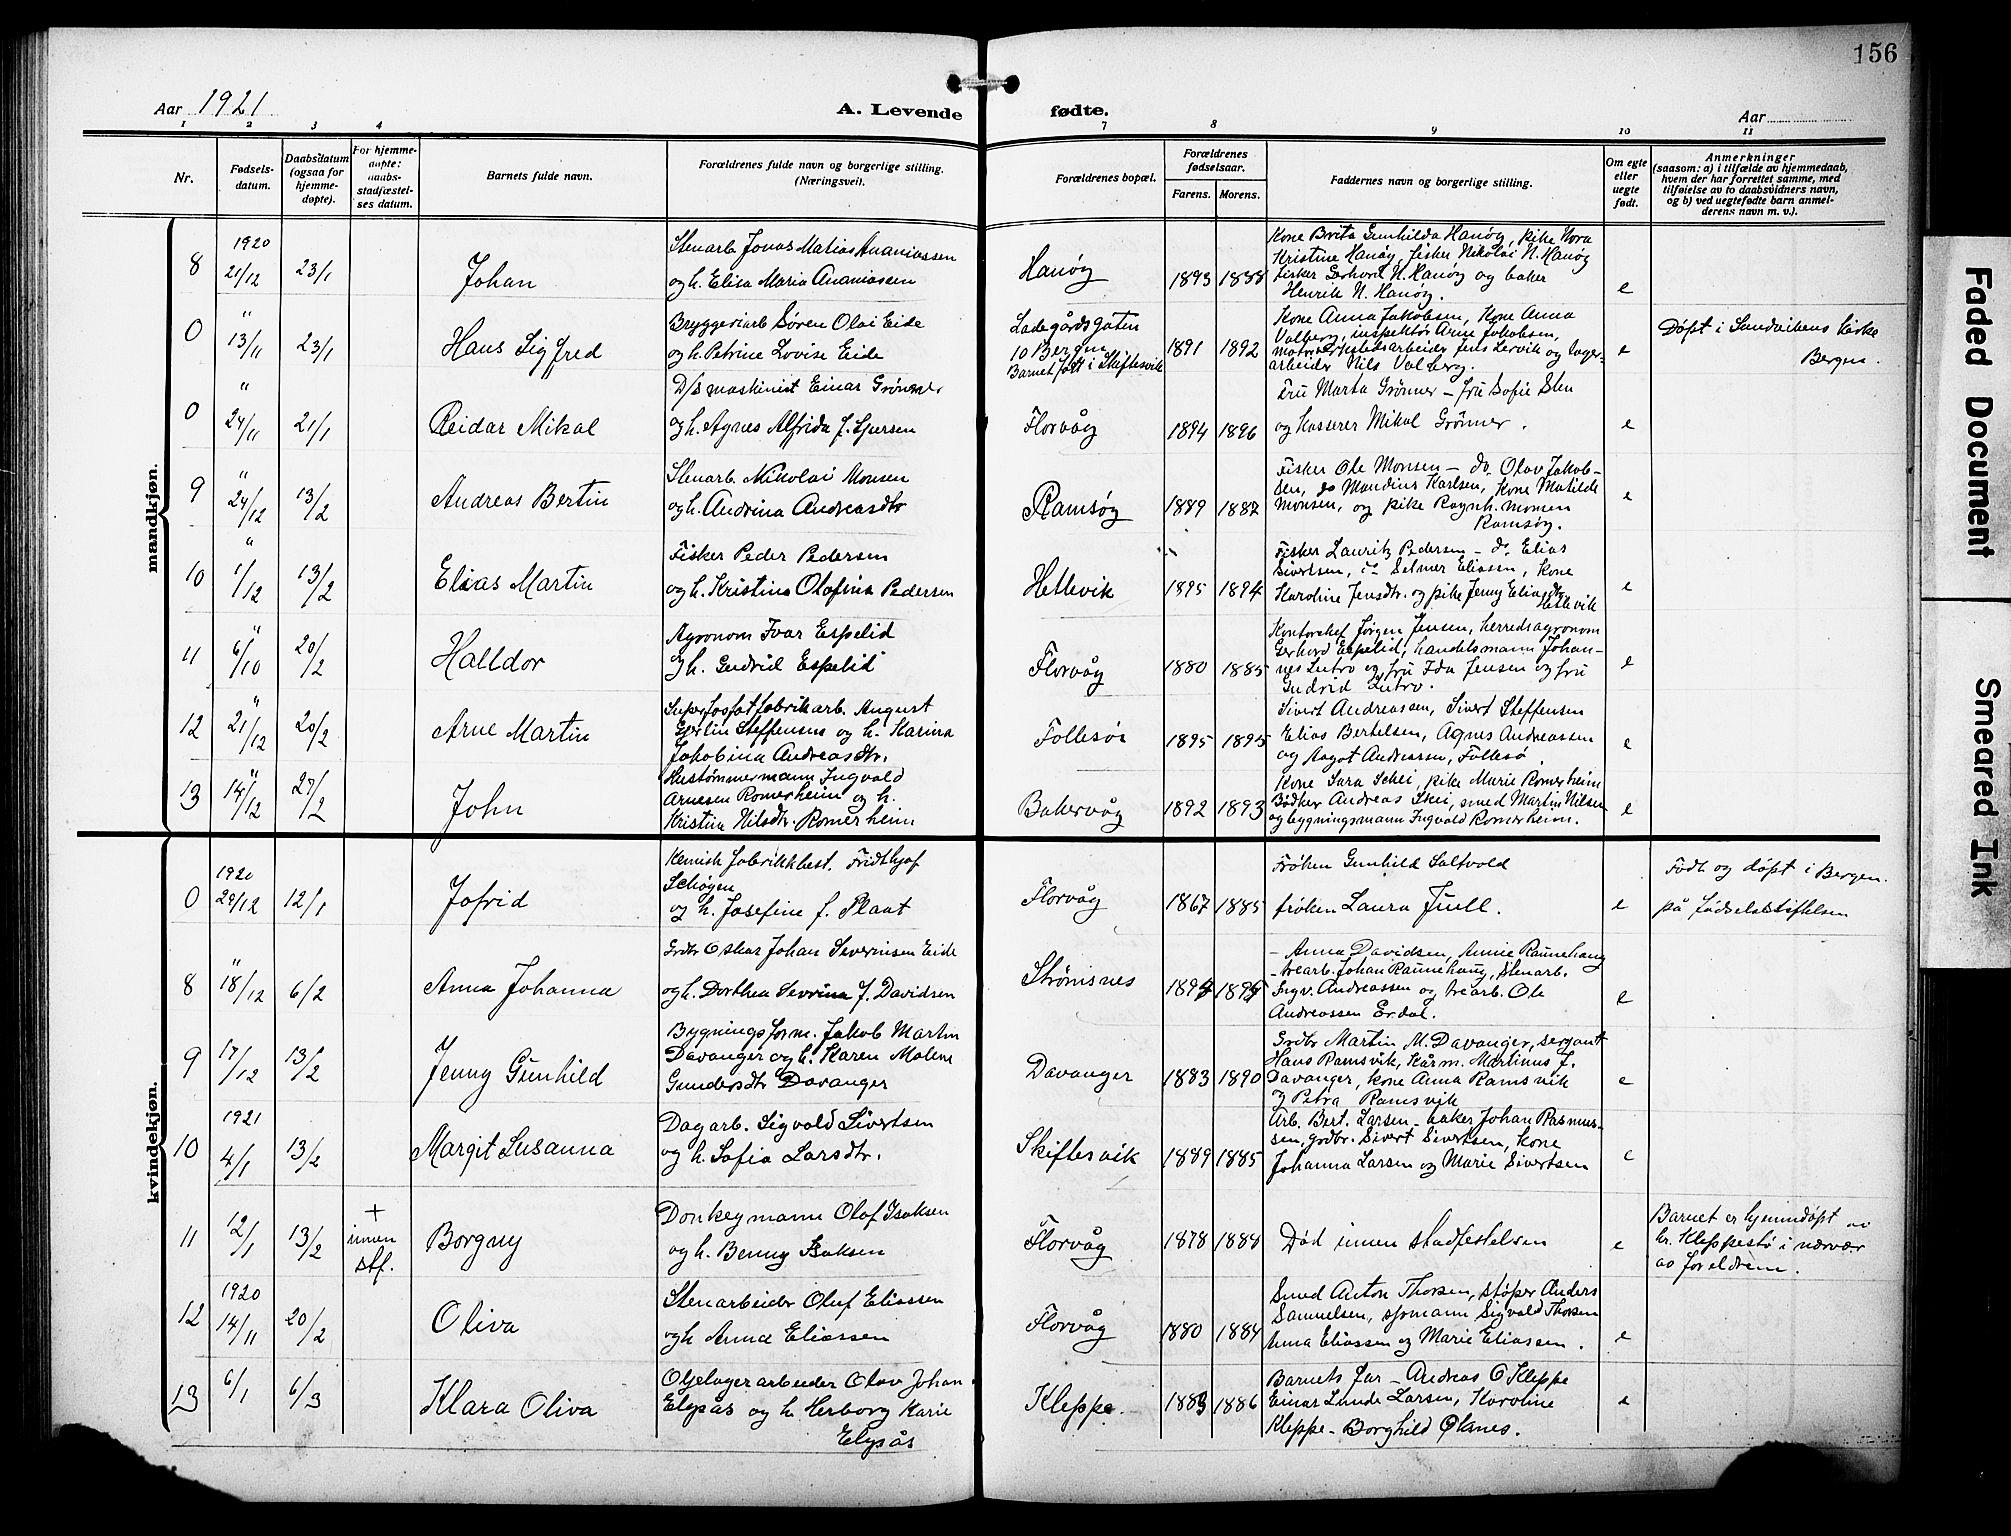 156
Aar 1921
A. Levende
fødte.
Aar
1 2 3 4 7 8 9 10 11
Nr.
Fødsels-
datum.
Daabsdatum
(ogsaa for
hjemme-
døpte).
For hjemme-
døpte:
daabs-
stadfæstel-
ses datum.
Barnets fulde navn.
Forældrenes fulde navn og borgerlige stilling.
(Næringsvei).
Forældrenes bopæl.
Forældrenes
fødselsaar.
Farens. Morens.
Faddernes navn og borgerlige stilling.
Om egte
eller
uegte
født.
Anmerkninger
(saasom: a) i tilfælde av hjemmedaab,
hvem der har forrettet samme, med
tilføielse av to daabsvidners navn,
og b) ved uegtefødte barn anmel-
derens navn m. v.).
mandkjøn.
8
1920
21/12
23/1
Johan
Stenarb Jonas Matias Ananiassen
og h. Elisa Maria Ananiassen
Hanøy
1893 1888
Kone Brita Gunhilda Hanøy, pike Nora
Kristine Hanøy, fisker Nikolai N. Hanøy
fisker Gerhard N. Hanøy og baker
Henrik N. Hanøy.
e
0
"
13/11
23/1
Hans Sigfred
Bryggeriarb Søren Olai Eide
og h. Petrine Lovise Eide
Ladegårdsgaten
10 Bergen
Barnet født i Skiftesvik
1891 1892
Kone Anna Jakobsen, Kone Anna
Valberg, inspektør Arne Jakobsen,
arbeider Jens Lervik og lager-
arbeider Nils Valberg.
e
Døpt i Sandvikens kirke
Bergen.
0
"
24/11
21/1
Reidar Mikal
D/S maskinist Einar Grønner
og h. Agnes Alfrida f. Spersen
Florvåg
1894 1896
Fru Marta Grønner – fru Sofie Sten
og Kasserer Mikal Grønner.
e
9
"
24/12
13/2
Andreas Bertin
Stenarb. Nikolai Monsen
og h. Andrina Andreasdtr
Ramsøy
1889 1887
Fisker Ole Monsen – do. Olav Jakob-
sen, do Mandius Karlsen, Kone Matilde
Monsen, og pike Ragnh. Monsen
Ramsøy.
e
10
"
1/12
13/2
Elias Martin
Fisker Peder Pedersen
og h. Kristina Olafina Pedersen
Hetlevik
1895 1894
Fisker Lauritz Pedersen – do. Elias
Sivertsen, do Selmer Eliassen, Kone
Karoline Jensdtr. og pike Jenny Eliasdtr
Hetlevik
e
11
"
6/10
20/2
Halldor
Agronom Ivar Espelid
og h. Gudrid Espelid
Florvåg
1880 1885
Kontorchef Jørgen Jensen, herredsagronom
Gerhard Espelid, handelsmann Johan-
nes Lutro og fru Ida Jensen og fru
Gudrid Lutro.
e
12
"
21/12
20/2
Arne Martin
Superfosfatfabrikarb. August
Bertin Steffensen og h. Karina
Jakobina Andreasdtr.
Follesø
1895 1895
Sivert Andreassen, Sivert Steffensen
Elias Bertelsen, Agnes Andreassen
og Aagot Andreassen, Follesø.
e
13
"
14/12
27/2
John
Hustømmermann Ingvald
Arnesen Romerheim og h.
Kristina Nilsdtr. Romerheim
Bakervåg
1892 1893
Kone Sara Schei, pike Marie Romerheim
Bødker Andreas Skei, smed Martin Nilsen
og bygningsmann Ingvald Romerheim.
e
kvindekjøn.
0
1920
29/12
12/1
Jofrid
Kemisk fabrikkbest. Fridthjof
Schøyen
og h. Josefine f. Plaat
Florvåg
1867 1885
Frøken Gunhild Saltvold
frøken Laura Juell.
e
Født og døpt i Bergen.
på fødselsstiftelsen
8
"
18/12
6/2
Anna Johanna
Grdbr Oskar Johan Severinsen Eide
og h. Dorthea Sevrina f. Davidsen
Strømsnes
1894 1895
– Anna Davidsen, Annie Raunehaug
– trearb. Johan Raunehaug, stenarb.
Ingv. Andreassen og trearb. Ole
Andreassen Erdal.
e
9
17/12
13/2
Jenny Gunhild
Bygningsform. Jakob Martin
Davanger og h. Karen Malene
Gundersdtr Davanger
Davanger
1883 1890
Grdbr Martin M. Davanger, sergant
Hans Ramsvik, Kårm. Martinus J.
Davanger, kone Anna Ramsvik
og Petra Ramsvik
e
10
1921
4/1
13/2
Margit Susanna
Dagarb. Sigvald Sivertsen
og h. Sofia Larsdtr.
Skiftesvik
1889 1885
Arb. Bert. Larsen – baker Johan Rasmus-
sen, grdbr. Sivert Sivertsen, Kone
Johanna Larsen og Marie Sivertsen
e
11
12/1
13/2
+
innen
stf.
Borgny
Donkeymann Olaf Isaksen
og h. Benny Isaksen
Florvåg
1878 1884
Død innen stadfestelsen
e
Barnet er hjemmdøpt av
hr. Kleppestø i nærvær
av foreldrene.
12
1920
14/11
20/2
Oliva
Stenarbeider Oluf Eliassen
og h Anna Eliassen
Florvåg
1880 1884
Smed Anton Thorsen, støper Anders
Samuelsen, sjømann Sigvald Thorsen
Anna Eliassen og Marie Eliassen.
e
13
6/1
6/3
Klara Oliva
Oljelagerarbeider Olav Johan
Elysås og h Herborg Karie
Elysås
Kleppe.
1883 1886
Barnets far – Andreas O Kleppe
Einar Lunde Larsen, Karoline
Kleppe – Borghild Øksnes.
e
Faded Document
Smeared Ink